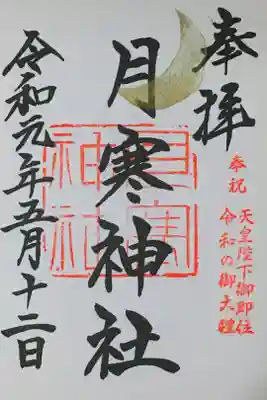 奉拝
奉祝
天皇陛下御即位
令和の御大禮
月寒神社
月寒
神社
令和元年五月十二日